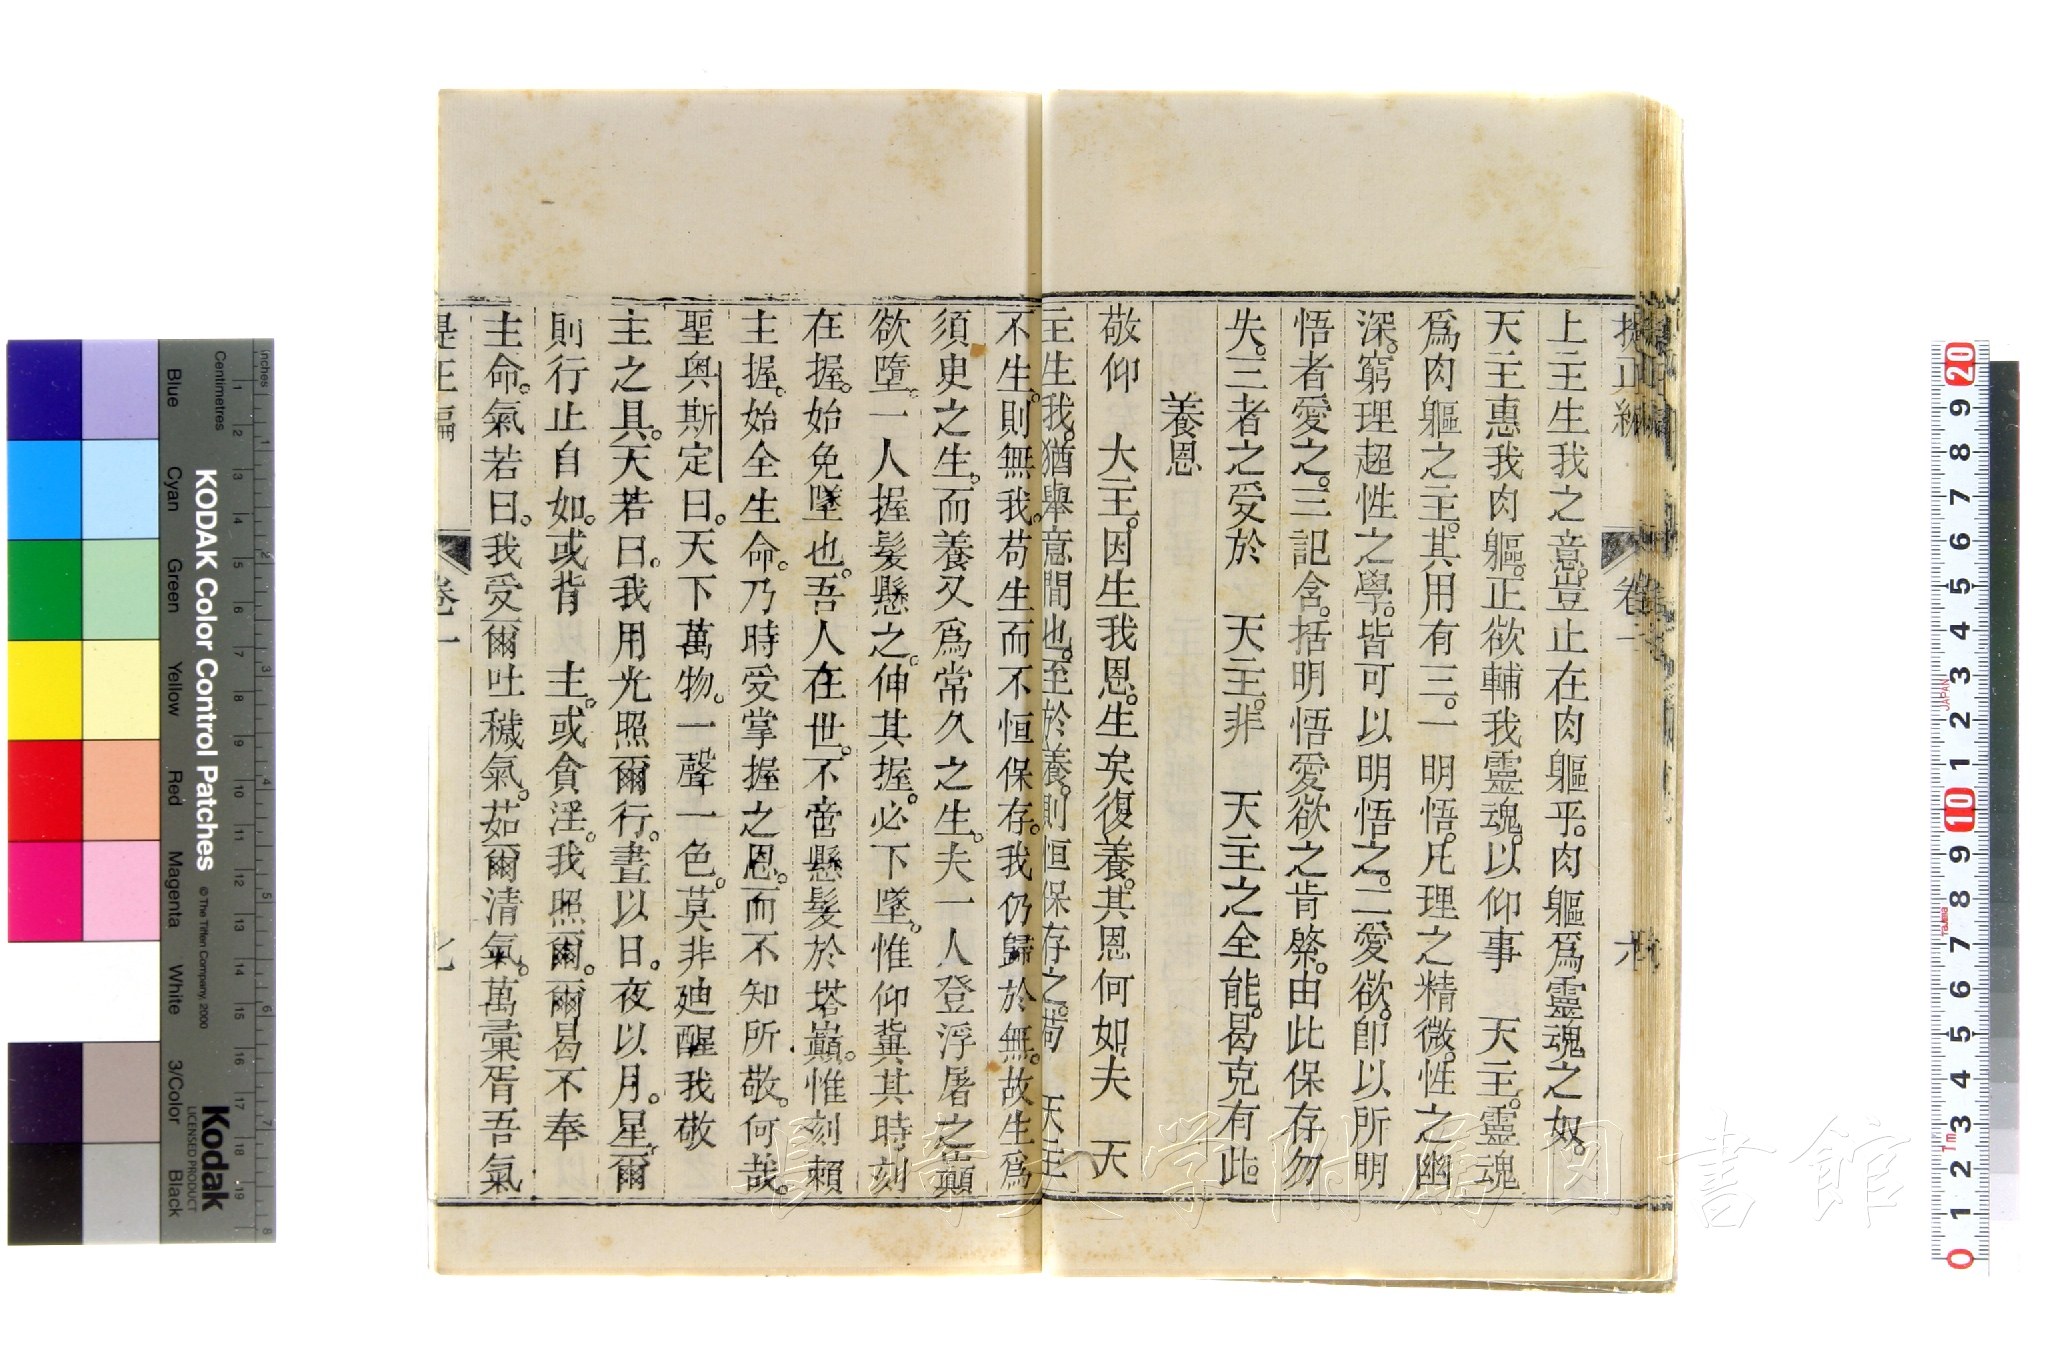 提正編 卷一 六
上主生我之意。豈止在肉軀乎。肉軀爲靈魂之奴。
天主惠我肉軀。正欲輔我靈魂。以仰事 天主。靈魂
爲肉軀之主。其用有三。一明悟。凡理之精微。性之幽
深。窮理超性之學。皆可以明悟之。二愛欲。卽以所明
悟者愛之。三記含。括明悟愛欲之肯綮。由此保存勿
失。三者之受於 天主。非 天主之全能。曷克有此。
養恩
敬仰 大主。因生我恩。生矣復養。其恩何如。夫 天
主生我。猶舉意間也。至於養。則恒保存之。苟 天主
不生。則無我。苟生而不恒保存。我仍歸於無。故生爲
須臾之生。而養又爲常久之生。夫一人登浮屠之巔
欲墮。一人握髮懸之。伸其握。必下墜。惟仰冀其時刻
在握。始免墜也。吾人在世。不啻懸髮於塔巔。惟刻賴
主握。始全生命。乃時受掌握之恩。而不知所敬。何哉。
聖奥斯定曰。天下萬物。一聲一色。莫非廸醒我敬
主之具。天若曰。我用光照爾行。晝以日。夜以月。星。爾
則行止自如。或背 主。或貪淫。我照爾。爾曷不奉
主命。氣若曰。我受爾吐穢氣。茹爾清氣。萬彙胥吾氣
提正編 卷一 七
KODAK Color Control Patches
© The Tiffen Company, 2000
Kodak
LICENSED PRODUCT
Inches
Centimetres
Blue
Cyan
Green
Yellow
Red
Magenta
White
3/Color
Black
1 2 3 4 5 6 7 8 9 10 11 12 13 14 15 16 17 18 19
1 2 3 4 5 6 7 8
20 9 8 7 6 5 4 3 2 1 10 9 8 7 6 5 4 3 2 1 0
JAPAN
長崎大学附属図書館